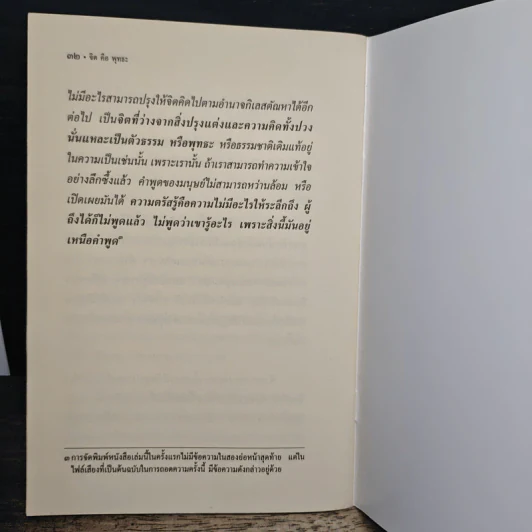 ๓๒ • จิต คือ พุทธะ
ไม่มีอะไรสามารถปรุงให้จิตคิดไปตามอำนาจกิเลสตัณหาได้อีก
ต่อไป เป็นจิตที่ว่างจากสิ่งปรุงแต่งและความคิดทั้งปวง
นั่นแหละเป็นตัวธรรม หรือพุทธะ หรือธรรมชาติเดิมแท้อยู่
ในความเป็นเช่นนั้น เพราะเรานั้น ถ้าเราสามารถทำความเข้าใจ
อย่างลึกซึ้งแล้ว คำพูดของมนุษย์ไม่สามารถหว่านล้อม หรือ
เปิดเผยมันได้ ความตรัสรู้คือความไม่มีอะไรให้ระลึกถึง ผู้
ถึงได้ก็ไม่พูดแล้ว ไม่พูดว่าเขารู้อะไร เพราะสิ่งนี้มันอยู่
เหนือคำพูด"
๓ การจัดพิมพ์หนังสือเล่มนี้ในครั้งแรกไม่มีข้อความในสองย่อหน้าสุดท้าย แต่ใน
ไฟล์เสียงที่เป็นต้นฉบับในการถอดความครั้งนี้ มีข้อความดังกล่าวอยู่ด้วย